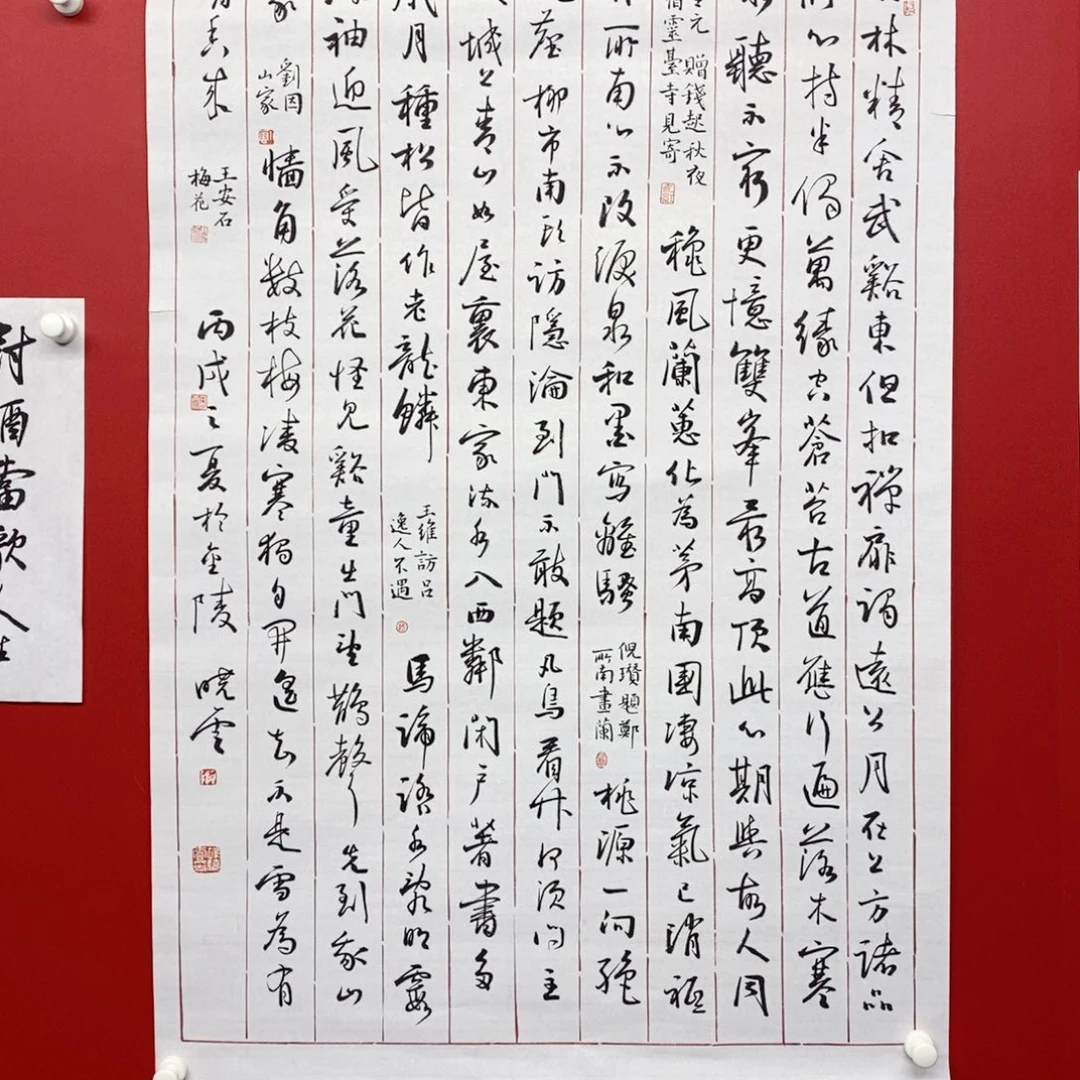 林精舍武谿東但扣禪扉謁遠公月在上方諸品
心持半偈萬緣空蒼苔古道應行遍落木寒
聽不窮更憶雙峯最高頂此心期與故人同
元贈錢起秋夜
宿靈臺寺見寄
穐風蘭蕙化為茅南國凄涼氣已消祗
所南心不改淚泉和墨寫離騷
倪瓚題鄭
所南畫蘭
桃源一向絕
塵柳市南頭訪隱淪到門不敢題凡鳥看竹何須問主
城上青山如屋裏東家流水入西鄰閉戶著書多
歲月種松皆作老龍鱗
王維訪呂
逸人不遇
馬蹄踏水亂明霞
袖迎風受落花怪見谿童出門望鵲聲先到我山
家
劉因
山家
牆角數枝梅凌寒獨自開遙知不是雪為有
香來
王安石
梅花
丙戌之夏於金陵 曉雲
對酒當歌人生